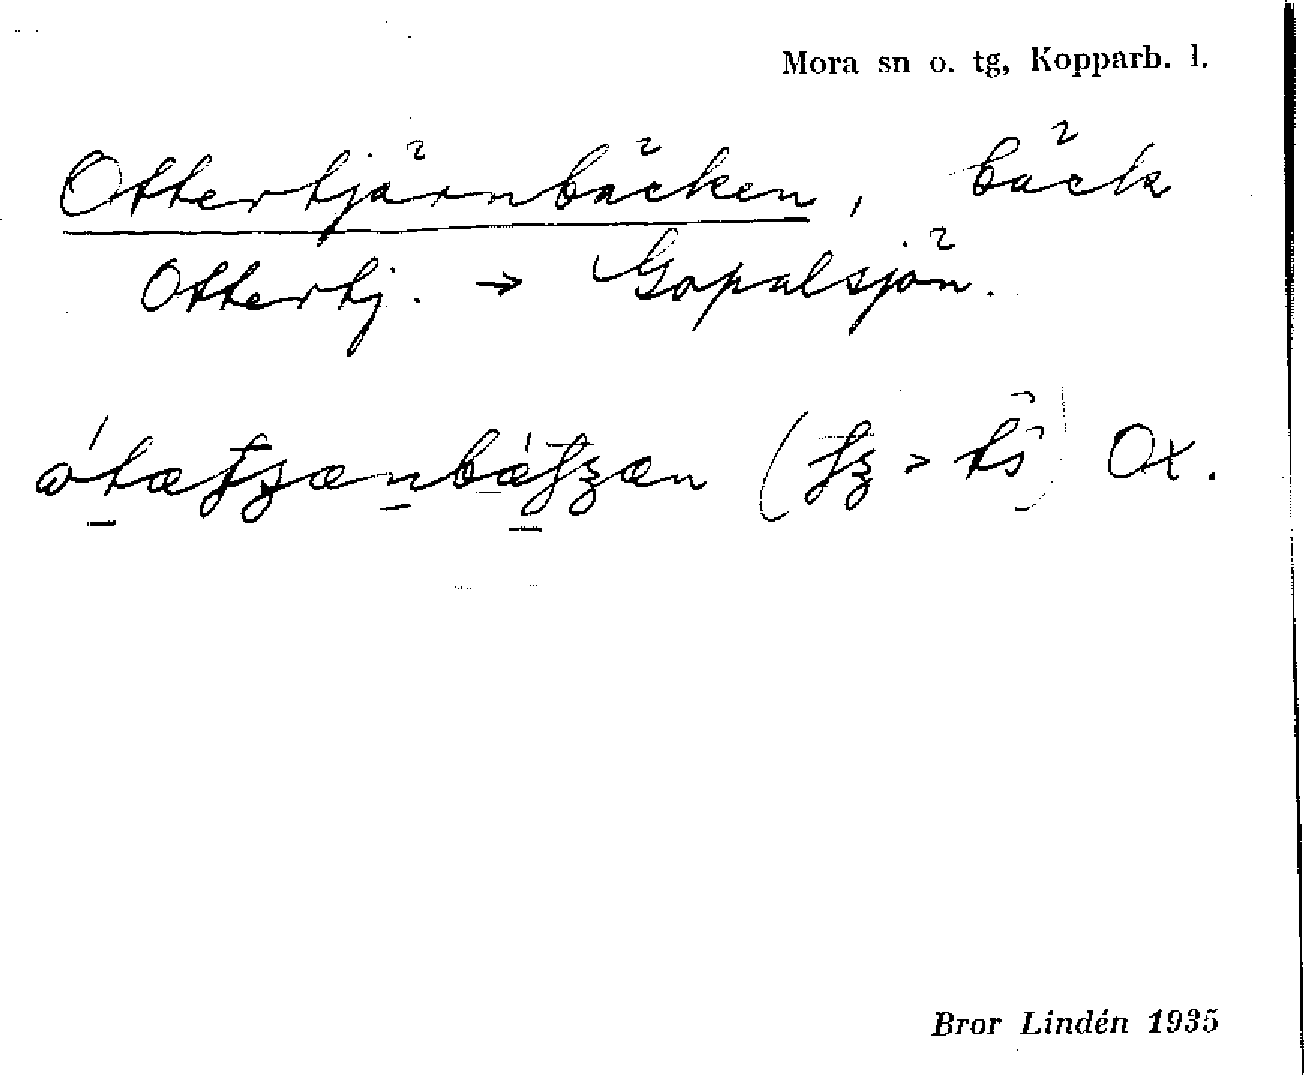 Mora sn o. tg, Kopparb. l.
Ottertjärnbäcken, bäck
Ottertj. → Gopalsjön.
Ox.
Bror Lindén 1935